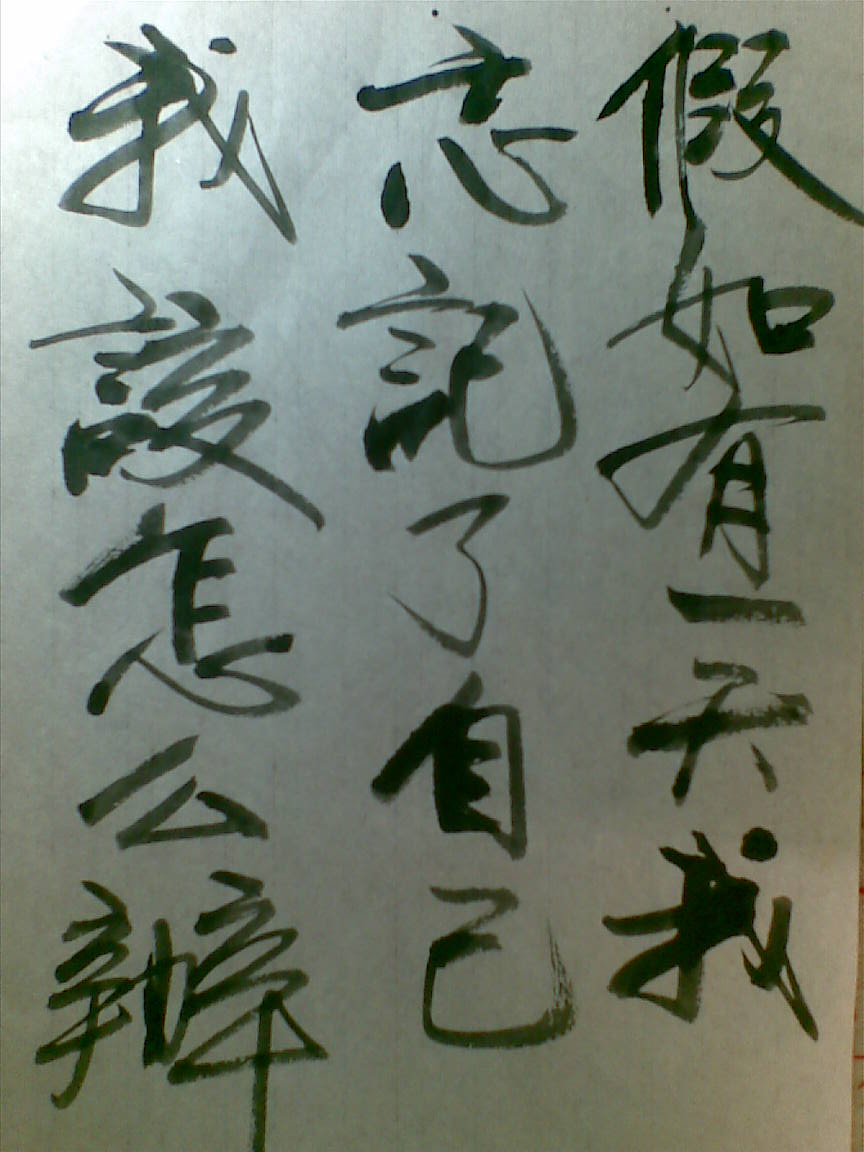 假如有一天我
忘記了自己
我該怎么辦